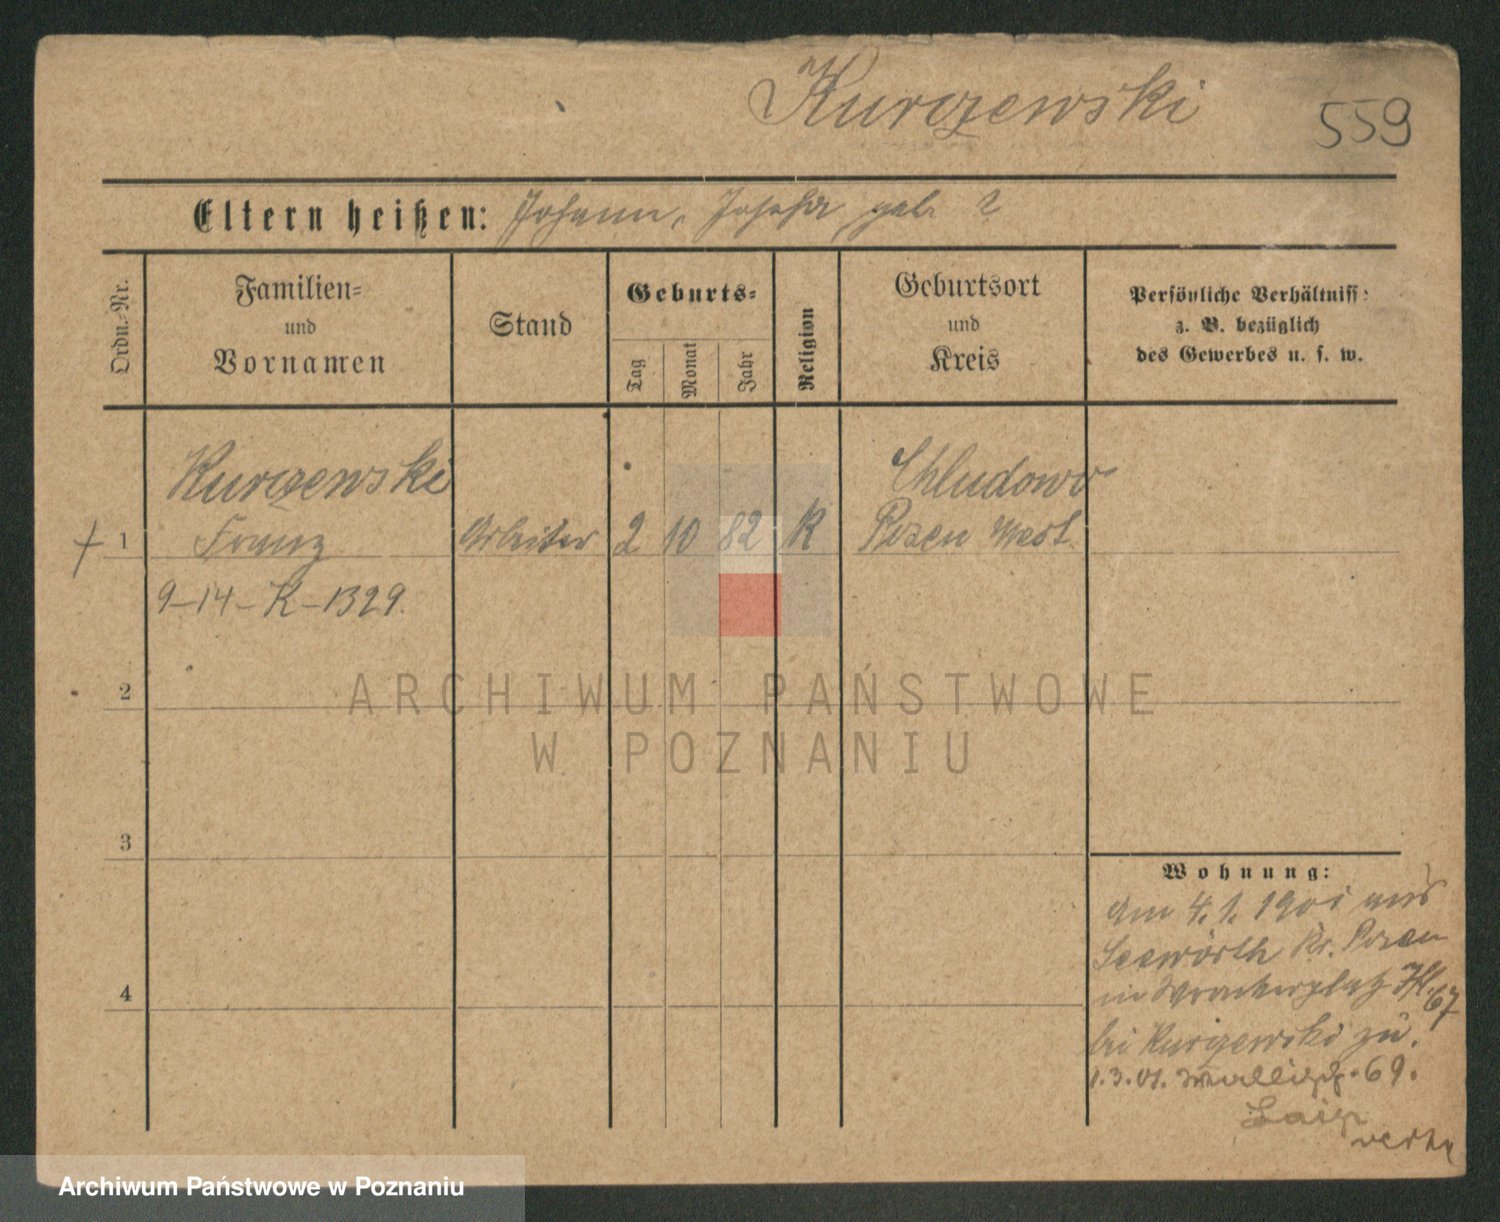 Kurczewski
559
Eltern heißen: Johann, Josefa geb. ?
Ordn.-Nr.
Familien-
und
Vornamen
Stand
Geburts-
Tag
Monat
Jahr
Religion
Geburtsort
und
Kreis
Persönliche Verhältniss:
z. B. bezüglich
des Gewerbes u. s. w.
Kurczewski
Chludowo
1 Franz Arbeiter 2 10 82 K Posen West
9-14-K-1329.
2
ARCHIWUM PAŃSTWOWE
W POZNANIU
3
Wohnung:
Am 4. 1. 1901 aus
Seewörth Kr. Posen
in 67
4
bei Kurczewski zu.
1.3.01. 69.
Archiwum Państwowe w Poznaniu